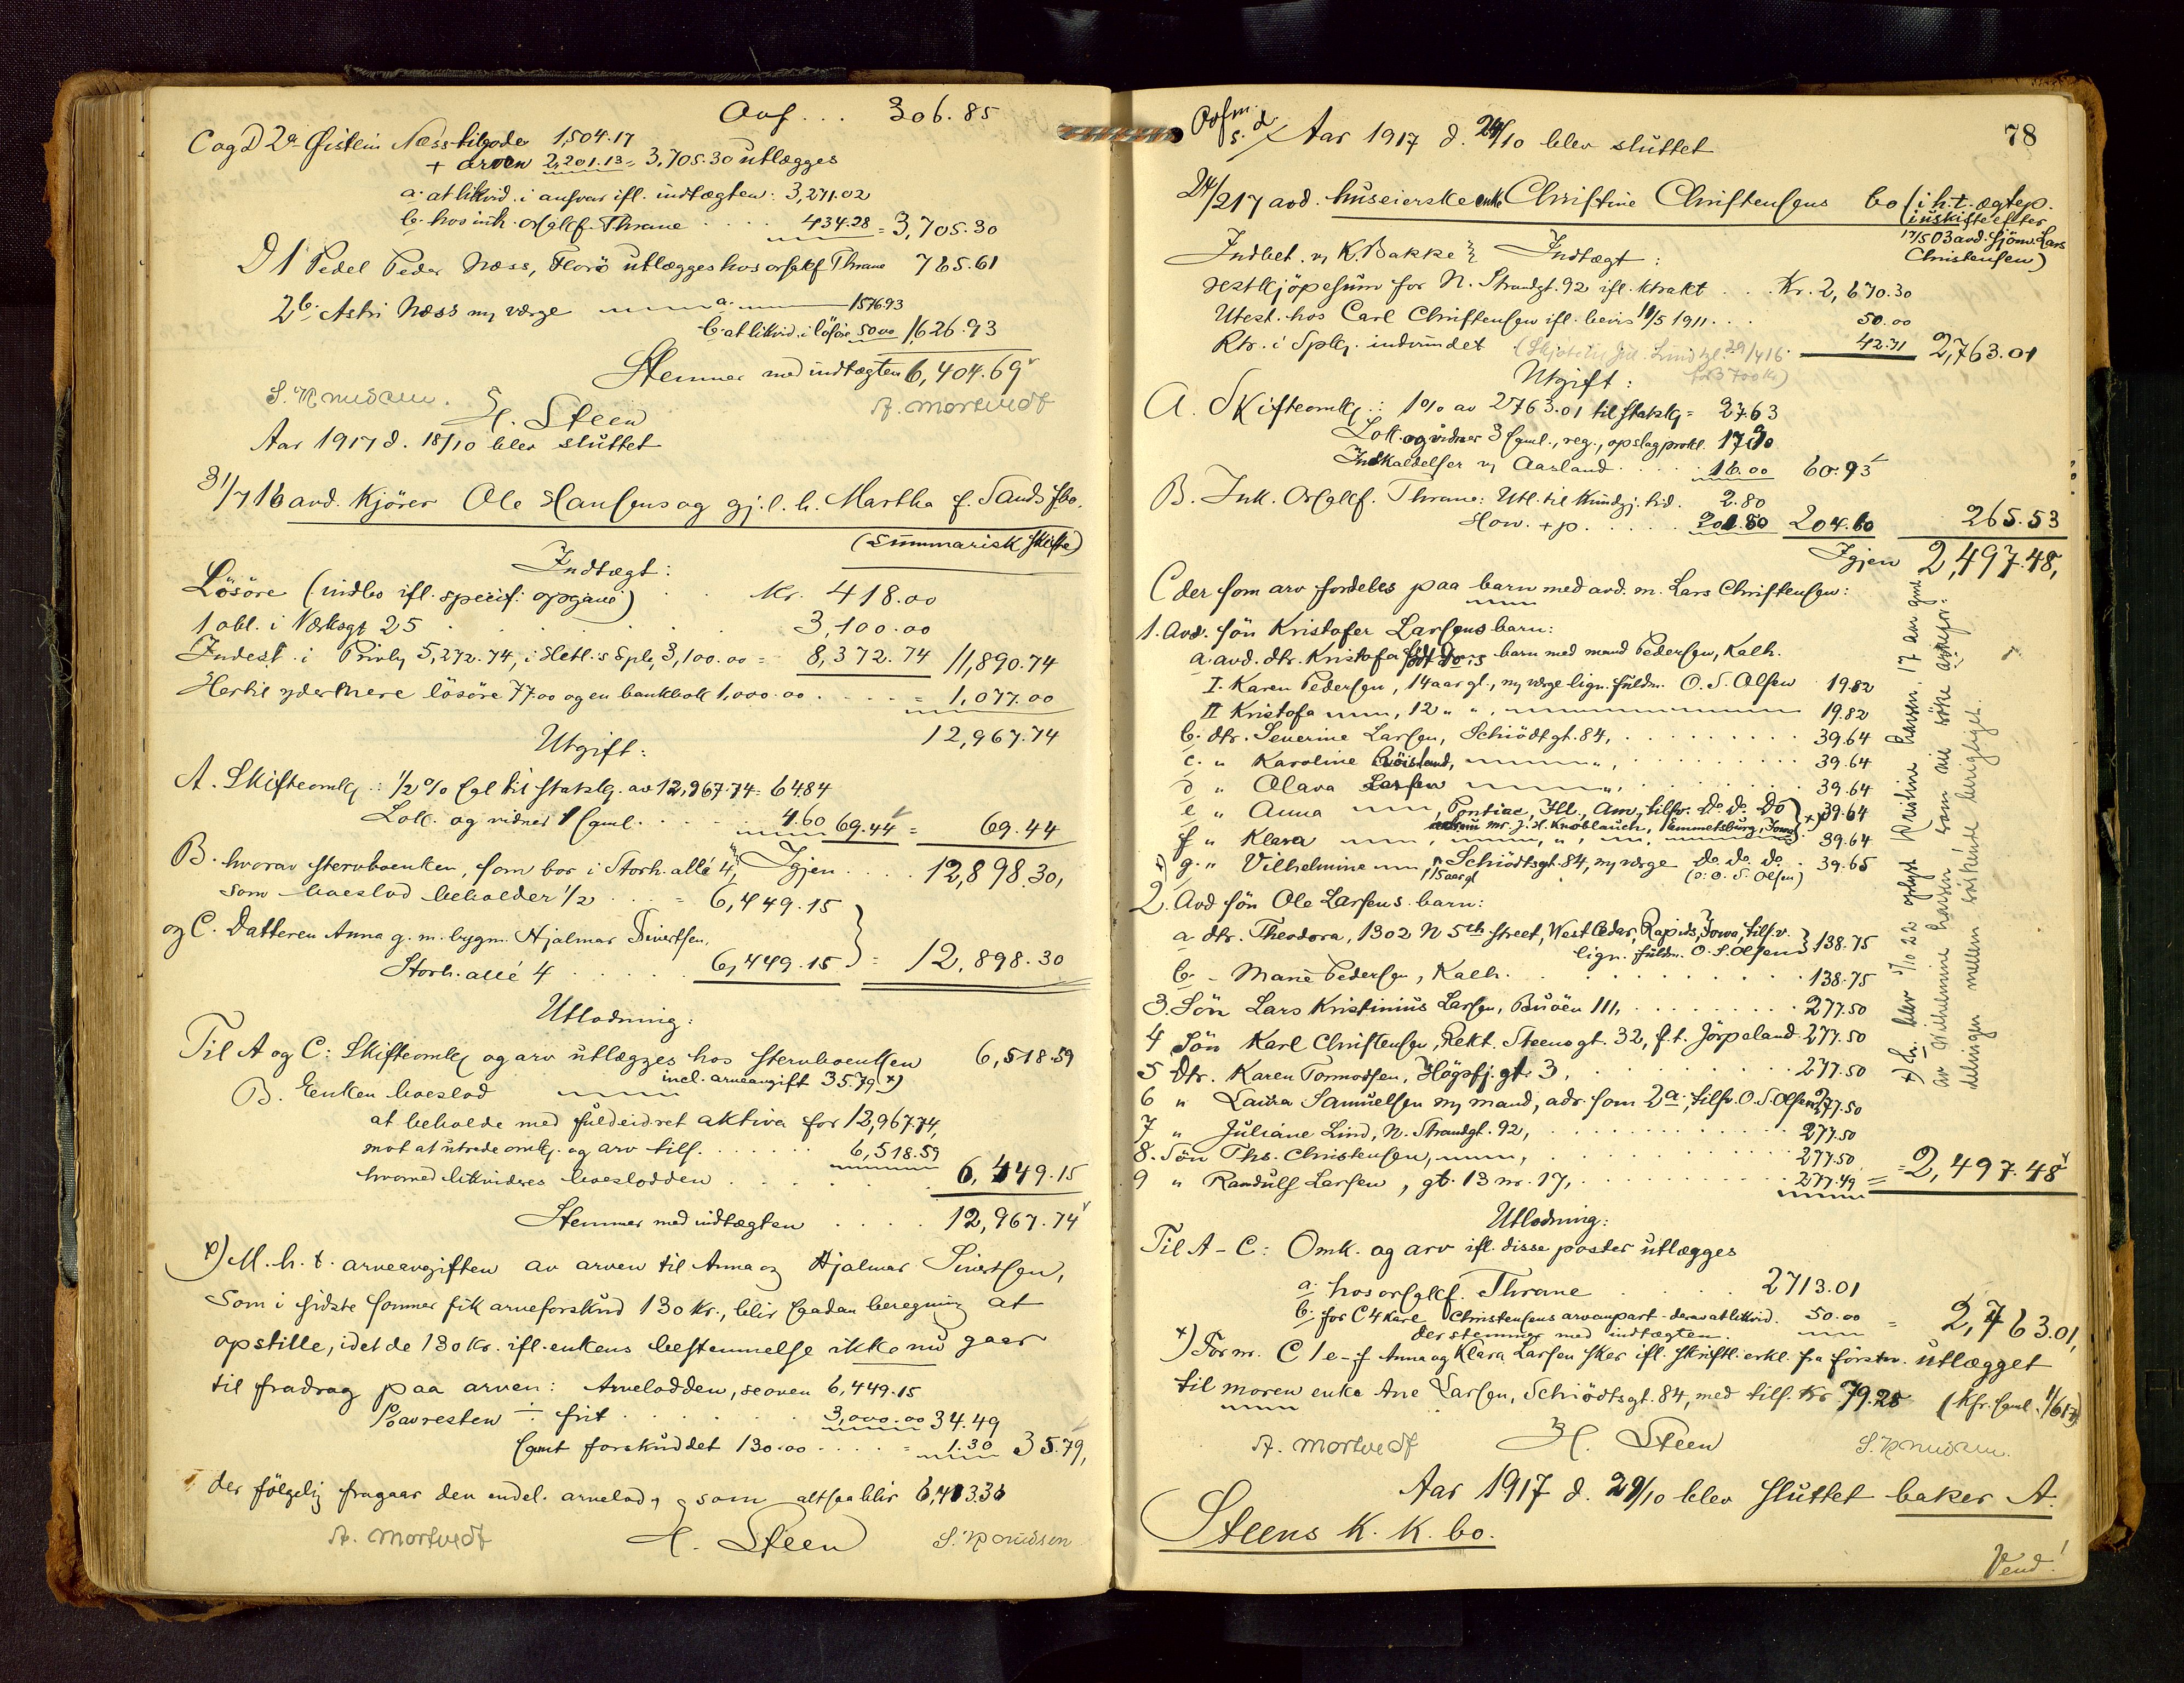 Ovf... 306.85
C og D 2a Øistein Næss tilgode 1,504.17
+ arven 2,201.13 = 3,705.30 utlægges
a. at likvid. i ansvar ifl. indtægten: 3,271.02
b. hos ink. Orsglkf. Thrane .... 434.28 = 3,705.30
D 1 Pedel Peder Næss, Florö utlægges hos orsglkf Thrane 765.61
2b. Astri Næss v, værge a. 1576.93
b. at likvid. i lösöre 50.00 1,626.93
Stemmer med indtægten 6,404.69
S. Knudsen. H. Steen A. Mortvedt
Aar 1917 d. 18/10 blev sluttet
31/7 16 avd. Kjörer Ole Hansens og gj.l. h. Martha f. Sands fbo.
(summarisk skifte)
Indtægt:
Lösöre (indbo ifl. specif. opgave) .. Kr. 418.00
1 obl. i Værksgt 25 3,100.00
Indest. i Privbg 5,272.74, i Hetl.s Splg. 3,100.00 = 8,372.74 11,890.74
Hertil ydermere lösöre 77.00 og en bankbok 1,000.00 .... = 1,077.00
12,967.74
Utgift:
A. Skifteomkg.: 1/2 % Egl til statsklg. av 12,967.74 = 64.84
Lok. og vidner 1 saml. .... 4.60 69.44 = 69.44
B. hvorav stervboenken, som bor i Storh. allé 4, Igjen .... 12,898.30,
som boeslod beholder 1/2 ... = 6,449.15
og C. Datteren Anna g. m. bygm. Hjalmar Sivertsen,
Storh. allé 4 ..... 6,449.15 } = 12,898.30
Utlodning:
Til A og C: Skifteomkg. og arv utlægges hos stervboenken 6,518.59
incl. arveavgift 35.79 x)
B. Enken boeslod
at beholde med fuld eidret aktiva for 12,967.74,
mot at utrede omkg. og arv tils. ...... 6,518.59
hvormed likvideres boeslodden ....... 6,449.15
Stemmer med indtægten .... 12,967.74
x) M. h. t. arveavgiften av arven til Anna og Hjalmar Sivertsen,
som i sidste sommer fik arveforskud 130 Kr., blir saadan beregning at
opstille, idet de 130 Kr. ifl. enkens bestemmelse ikke nu gaar
til fradrag paa arven: Arvelodden, se oven 6,449.15
1% av resten ÷ frit ...... 3,000.00 34.49
samt forskuddet 130.00 .... = 1.30 35.79,
der fölgelig fragaar den endel. arvelod, som altsaa blir 6,413.36
A. Mortvedt H. Steen S. Knudsen
78
Ovfm. s. d.
Aar 1917 d. 24/10 blev sluttet
24/2 17 avd. huseierske enke Christine Christensens bo (i h. t. ægtep.
i uskifte efter
17/5 03 avd. sjöm. Lars
Christensen)
Indbet. v, K. Bakke Indtægt:
Restkjöpesum for N. Strandgt. 92 ifl. ktrakt ... Kr. 2,670.30
Utest. hos Carl Christensen ifl. bevis 10/5 1911 ... 50.00
Rtr. i Splg. indvundet (Skjöte til Jul. Lind tgl. 29/4 16. 42.71 2,763.01
for 3700 kr)
Utgift:
A. Skifteomkg.: 1% av 2763.01 til statsklg = 27.63
Lok. og vidner 3 saml., reg., opslag protl. 17.30
Indkaldelser v, Aarland .... 16.00 60.93
B. Ink. Orsglkf. Thrane: Utl. til kundgj. tid. 2.80
How. + p. ..... 201.80 204.60 265.53
Igjen 2,497.48,
C der som arv fordeles paa barn med avd. m. Lars Christensen:
1. Avd. sön Kristofer Larsens barn:
a. avd. dtr. Kristofa barn med mand Pedersen, Kalh.
I. Karen Pedersen, 14 aar gl., v, værge lign. fuldm. O. S. Olsen 19.82
II Kristofa, 12 " ", 19.82
b. dtr. Severine Larsen, Schiödtgt. 84, ......... 39.64
c. " Karoline Röisland, ......... 39.64
d " Olava Larsen ", ....... 39.64
e " Anna , Pontiac, Ill., Am, tilsv. Do. Do. Do } x) 39.64
mr. J. H. Knoblauch, Emmetsburg, Iowa
f " Klara , " , 39.64
x) g. " Vilhelmine , Schiödtsgt. 84, v, værge do. do. do. . 39.65
15 aar gl (p: O. S. Olsen)
2. Avd sön Ole Larsens barn:
a dtr. Theodora, 1302 N 5th street, West Cedar, Rapids, Iowa, tilsv.
lign. fuldm. O. S. Olsen } 138.75
b - Marie Pedersen, Kalh. 138.75
3. Sön Lars Kristinius Larsen, Buöen 111, ........ 277.50
4 Sön Karl Christensen, Rekt. Steens gt. 32, f. t. Jörpeland 277.50
5 Dtr. Karen Tormodsen, Högsfj. gt. 3, 277.50
6 " Laura Samuelsen v, mand, adr. som 2a, tilsv. O. S. Olsen 277.50
7 " Juliane Lind, N. Strandgt. 92, 277.50
8. Sön Ths. Christensen, , 277.50
9 " Randulf Larsen, gt. 13 nr. 17, .......... 277.49 = 2,497.48
Utlodning:
Til A - C: Omk. og arv ifl. disse poster utlægges
a. hos orsglkf. Thrane 2713.01
b. for C 4 Karl Christensens arvepart - derav at likvid. 50.00 = 2,763.01,
der stemmer med indtægten.
x) For nr. C 1 e-f Anna og Klara Larsen sker ifl. skriftl. erkl. fra förstnv. utlægget
til moren enke Ane Larsen, Schiödtsgt. 84, med tils. kr 79.28 (Kfr. saml. 1/6 17)
A. Mortvedt H. Steen S. Knudsen.
Aar 1917 d. 29/10 blev sluttet baker A.
Steens K. K. bo.
Vend!
x) Ex. blev 5/10 22 oplyst Kristine Larsen. 17 aar gml
av Vilhelmine Larsen som vil söke
delingen mellem